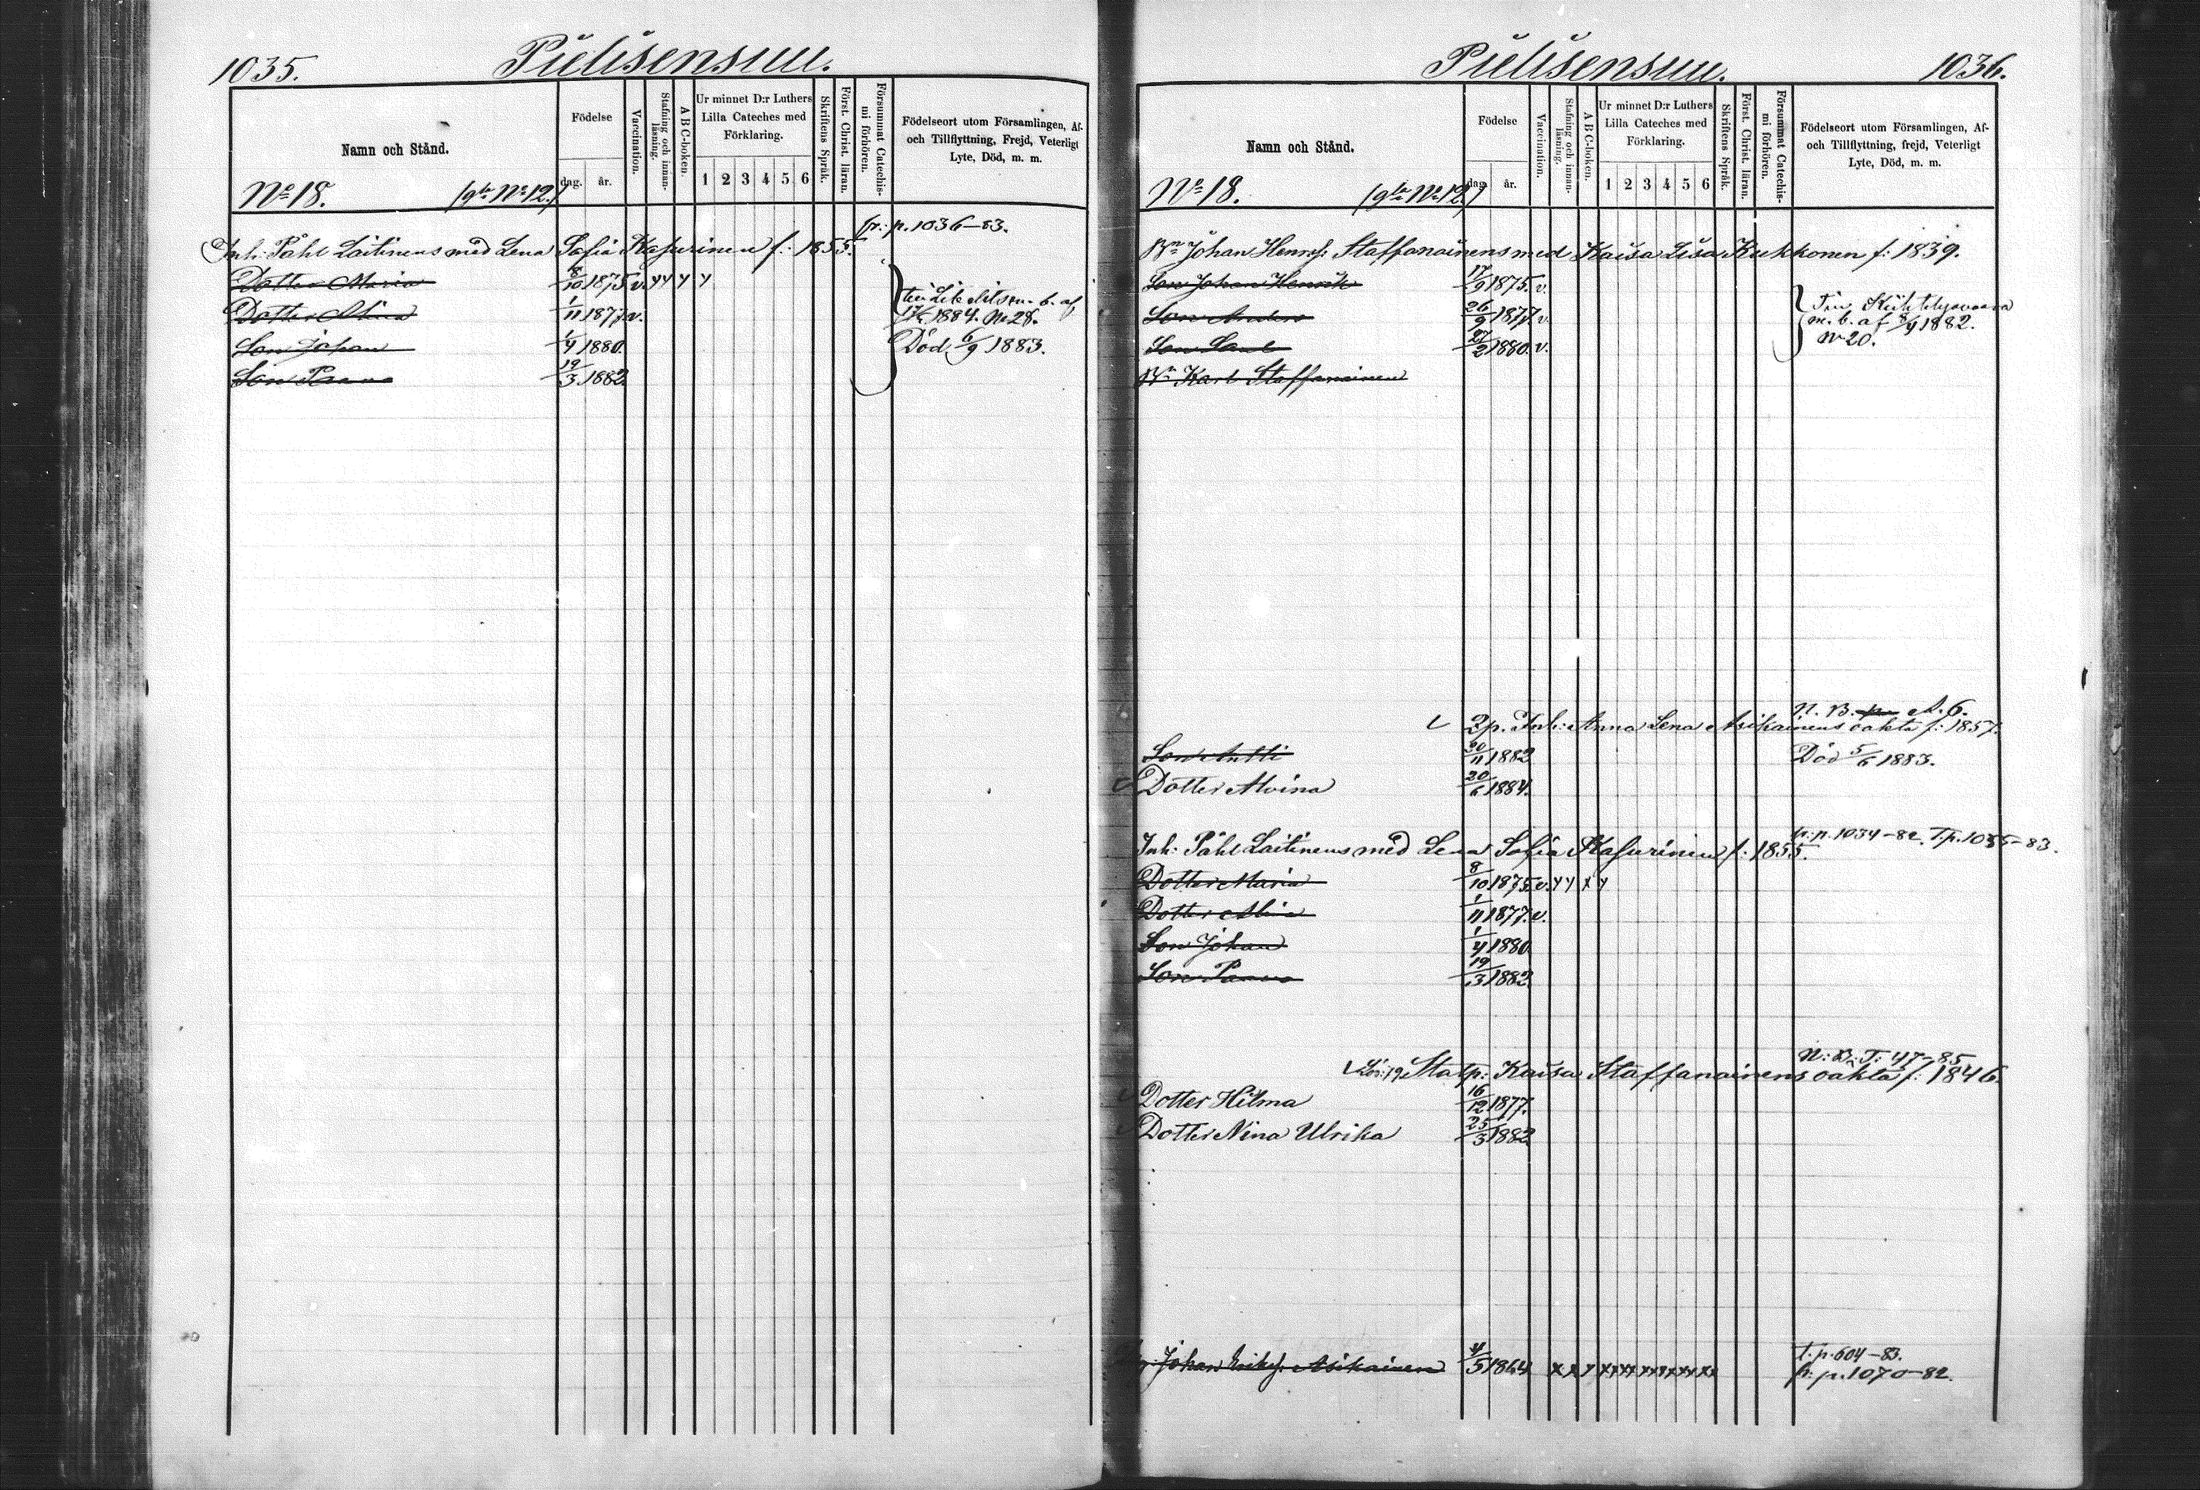 1035. Pielisensuu.
Namn och Stånd.
Födelse
dag. år.
Vaccination.
Stafning och innanläsning.
ABC-boken.
Ur minnet D:r Luthers Lilla Cateches med Förklaring.
1 2 3 4 5 6
Skriftens Språk.
Först. Christ. läran.
Försummat Catechismi förhören.
Födelseort utom Församlingen, Af- och Tillflyttning, Frejd, Veterligt Lyte, Död, m. m.
No 18. (gla No 12.)
fr: p. 1036-83.
Inh: Påhl Laitinens med Lena Sofia Kasurinen f: 1855.
Dotter Maria 8/10 1875 v.
Dotter Alina 1/11 1877 v.
1884. No 28.
Son Johan 1/4 1880. Död 6/9 1883.
Son Paavo 19/3 1882
Pielisensuu. 1036.
Namn och Stånd.
Födelse
dag. år.
Vaccination.
Stafning och innanläsning.
ABC-boken.
Ur minnet D:r Luthers Lilla Cateches med Förklaring.
1 2 3 4 5 6
Skriftens Språk.
Först. Christ. läran.
Försummat Catechismi förhören.
Födelseort utom Församlingen, Af- och Tillflyttning, frejd, Veterligt Lyte, Död, m. m.
No 18. (gla No 12.)
Bn Johan Henrs: Staffanainens med Kaisa Lisa Kukkonen f: 1839.
Son Johan Henrik 17/9 1875. v.
Son Anders 26/9 1877. v. m. b. af 1882.
Son Saul 27/2 1880. v. No 20.
Bn Karl Staffanainen
N. B. A. 6.
2p. Inh: Anna Lena Asikainens oäkta f: 1857.
Son Antti 20/11 1882 Död 5/6 1883.
Dotter Alvina 20/6 1884.
fr: p. 1034-82. T. p. 1035-83.
Inh: Påhl Laitinens med Lena Sofia Kasurinen f: 1855.
Dotter Maria 8/10 1875. v.
Dotter Alina 1/11 1877. v.
Son Johan 1/4 1880
Son Paavo 19/3 1882
N: B: T: 47-85
Statp: Kaisa Staffanainens oäkta f: 1846.
Dotter Hilma 16/12 1877.
Dotter Nina Ulrika 25/3 1882
t. p. 604-83.
Johan Eriksj: Asikainen 4/5 1864 fr: p. 1070-82.